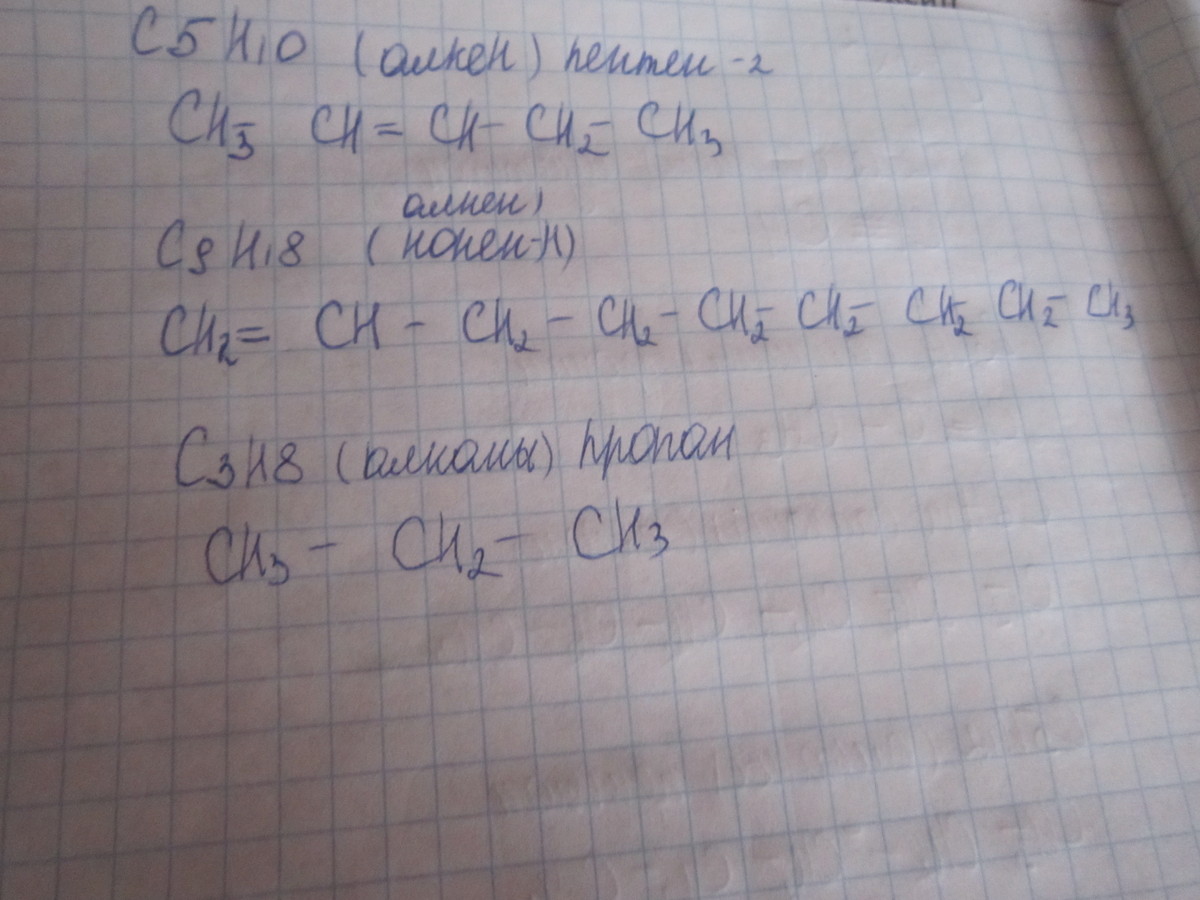 C5H10 (алкен) пентен-2
CH3- CH = CH - CH2 - CH3
алкен,
C9H18 (нонен-1)
CH2= CH - CH2 - CH2 - CH2- CH2- CH2- CH2- CH3
C3H8 (алканы) пропан
CH3 - CH2 - CH3